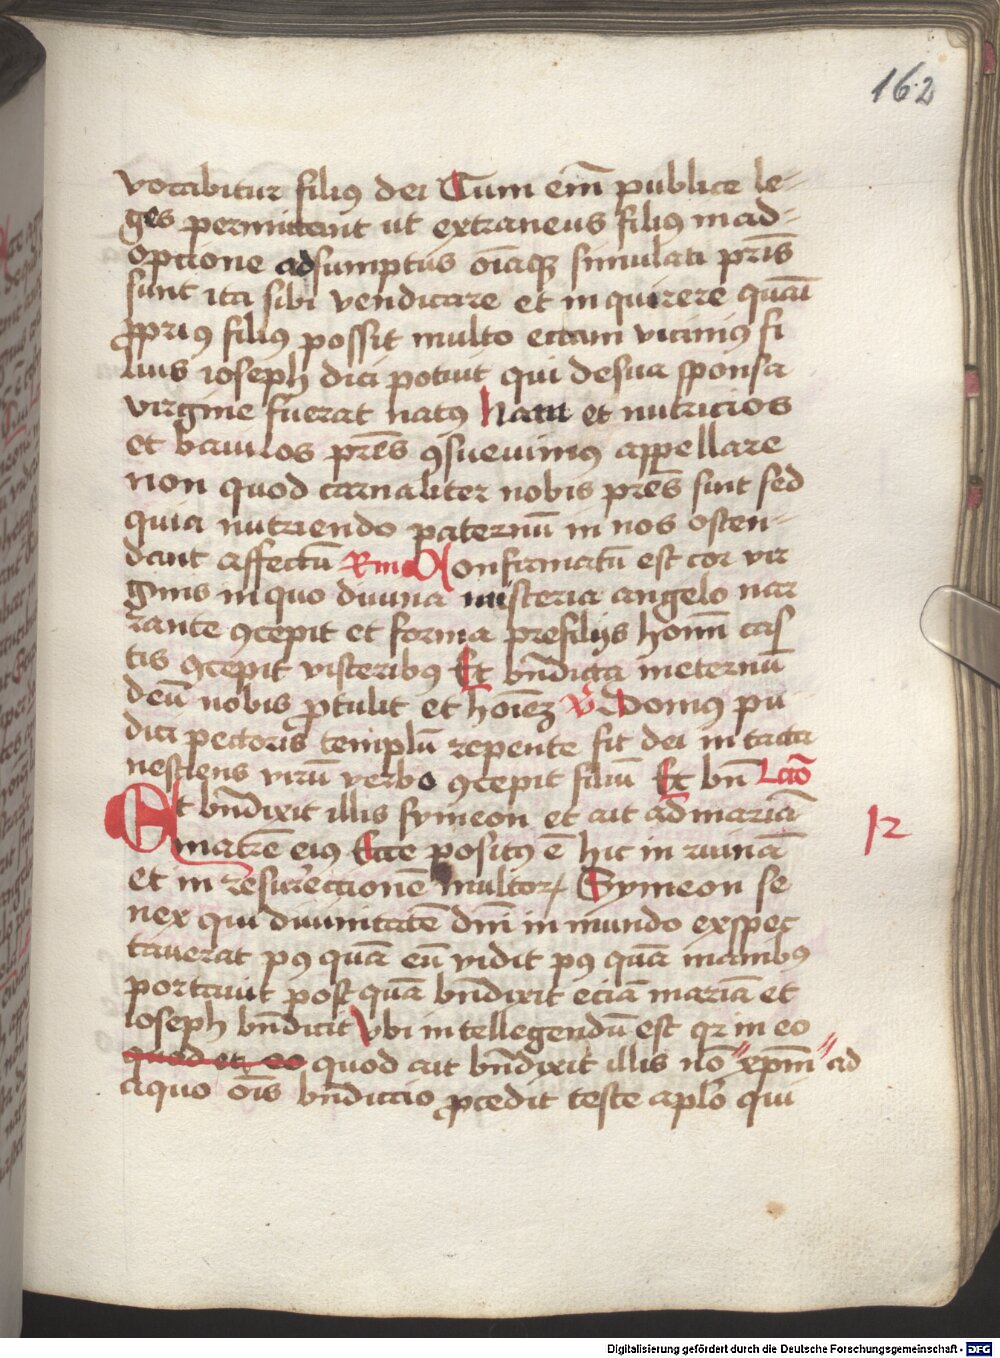 162
vocabitur filiꝰ dei Cum em̄ publice le-
ges permittant ut extraneus filiꝰ in ad-
optione adsumptus oīaqꝫ simulati pr̄is
sunt ita sibi vendicare et inquirere quā
ꝓpriꝰ filiꝰ possit multo eciam viciniꝰ fi
lius ioseph dici potuit qui de sua sponsa
virgine fuerat natꝰ Nam et nutricios
et baiulos pr̄es ꝯsuevimꝰ appellare
non quod carnaliter nobis pr̄es sint sed
quia nutriendo paternū in nos osten-
dant affectū Rm̄ Confirmatū est cor vir
ginis in quo divina misteria angelo nar
rante ꝯcepit et forma pre filijs homī cas
tis ꝯcepit visceribꝰ Et bn̄dicta in eternū
deū nobis ꝓtulit et hoīeꝫ V̊ Domꝰ pu
dici pectoris templū repente fit dei intacta
nesciens virū verbo ꝯcepit filiū Et bn̄ Lcīo
Et bn̄dixit illis symeon et ait ad mariā
matrē eiꝰ Ecce positꝰ ē hic in ruinā
et in resurectionē multoꝝ Symeon se
nex qui divinitatē dn̄i in mundo exspec
taverat pꝰ quā eū vidit pꝰ quā manibꝰ
portavit post quā bn̄dixit eciā mariā et
ioseph bn̄dicit Vbi intellegendū est qꝛ in eo
quod et eo quod ait bn̄dixit illis nō "xp̄m" ad
a quo oīs bn̄dictio ꝓcedit teste aplō qui